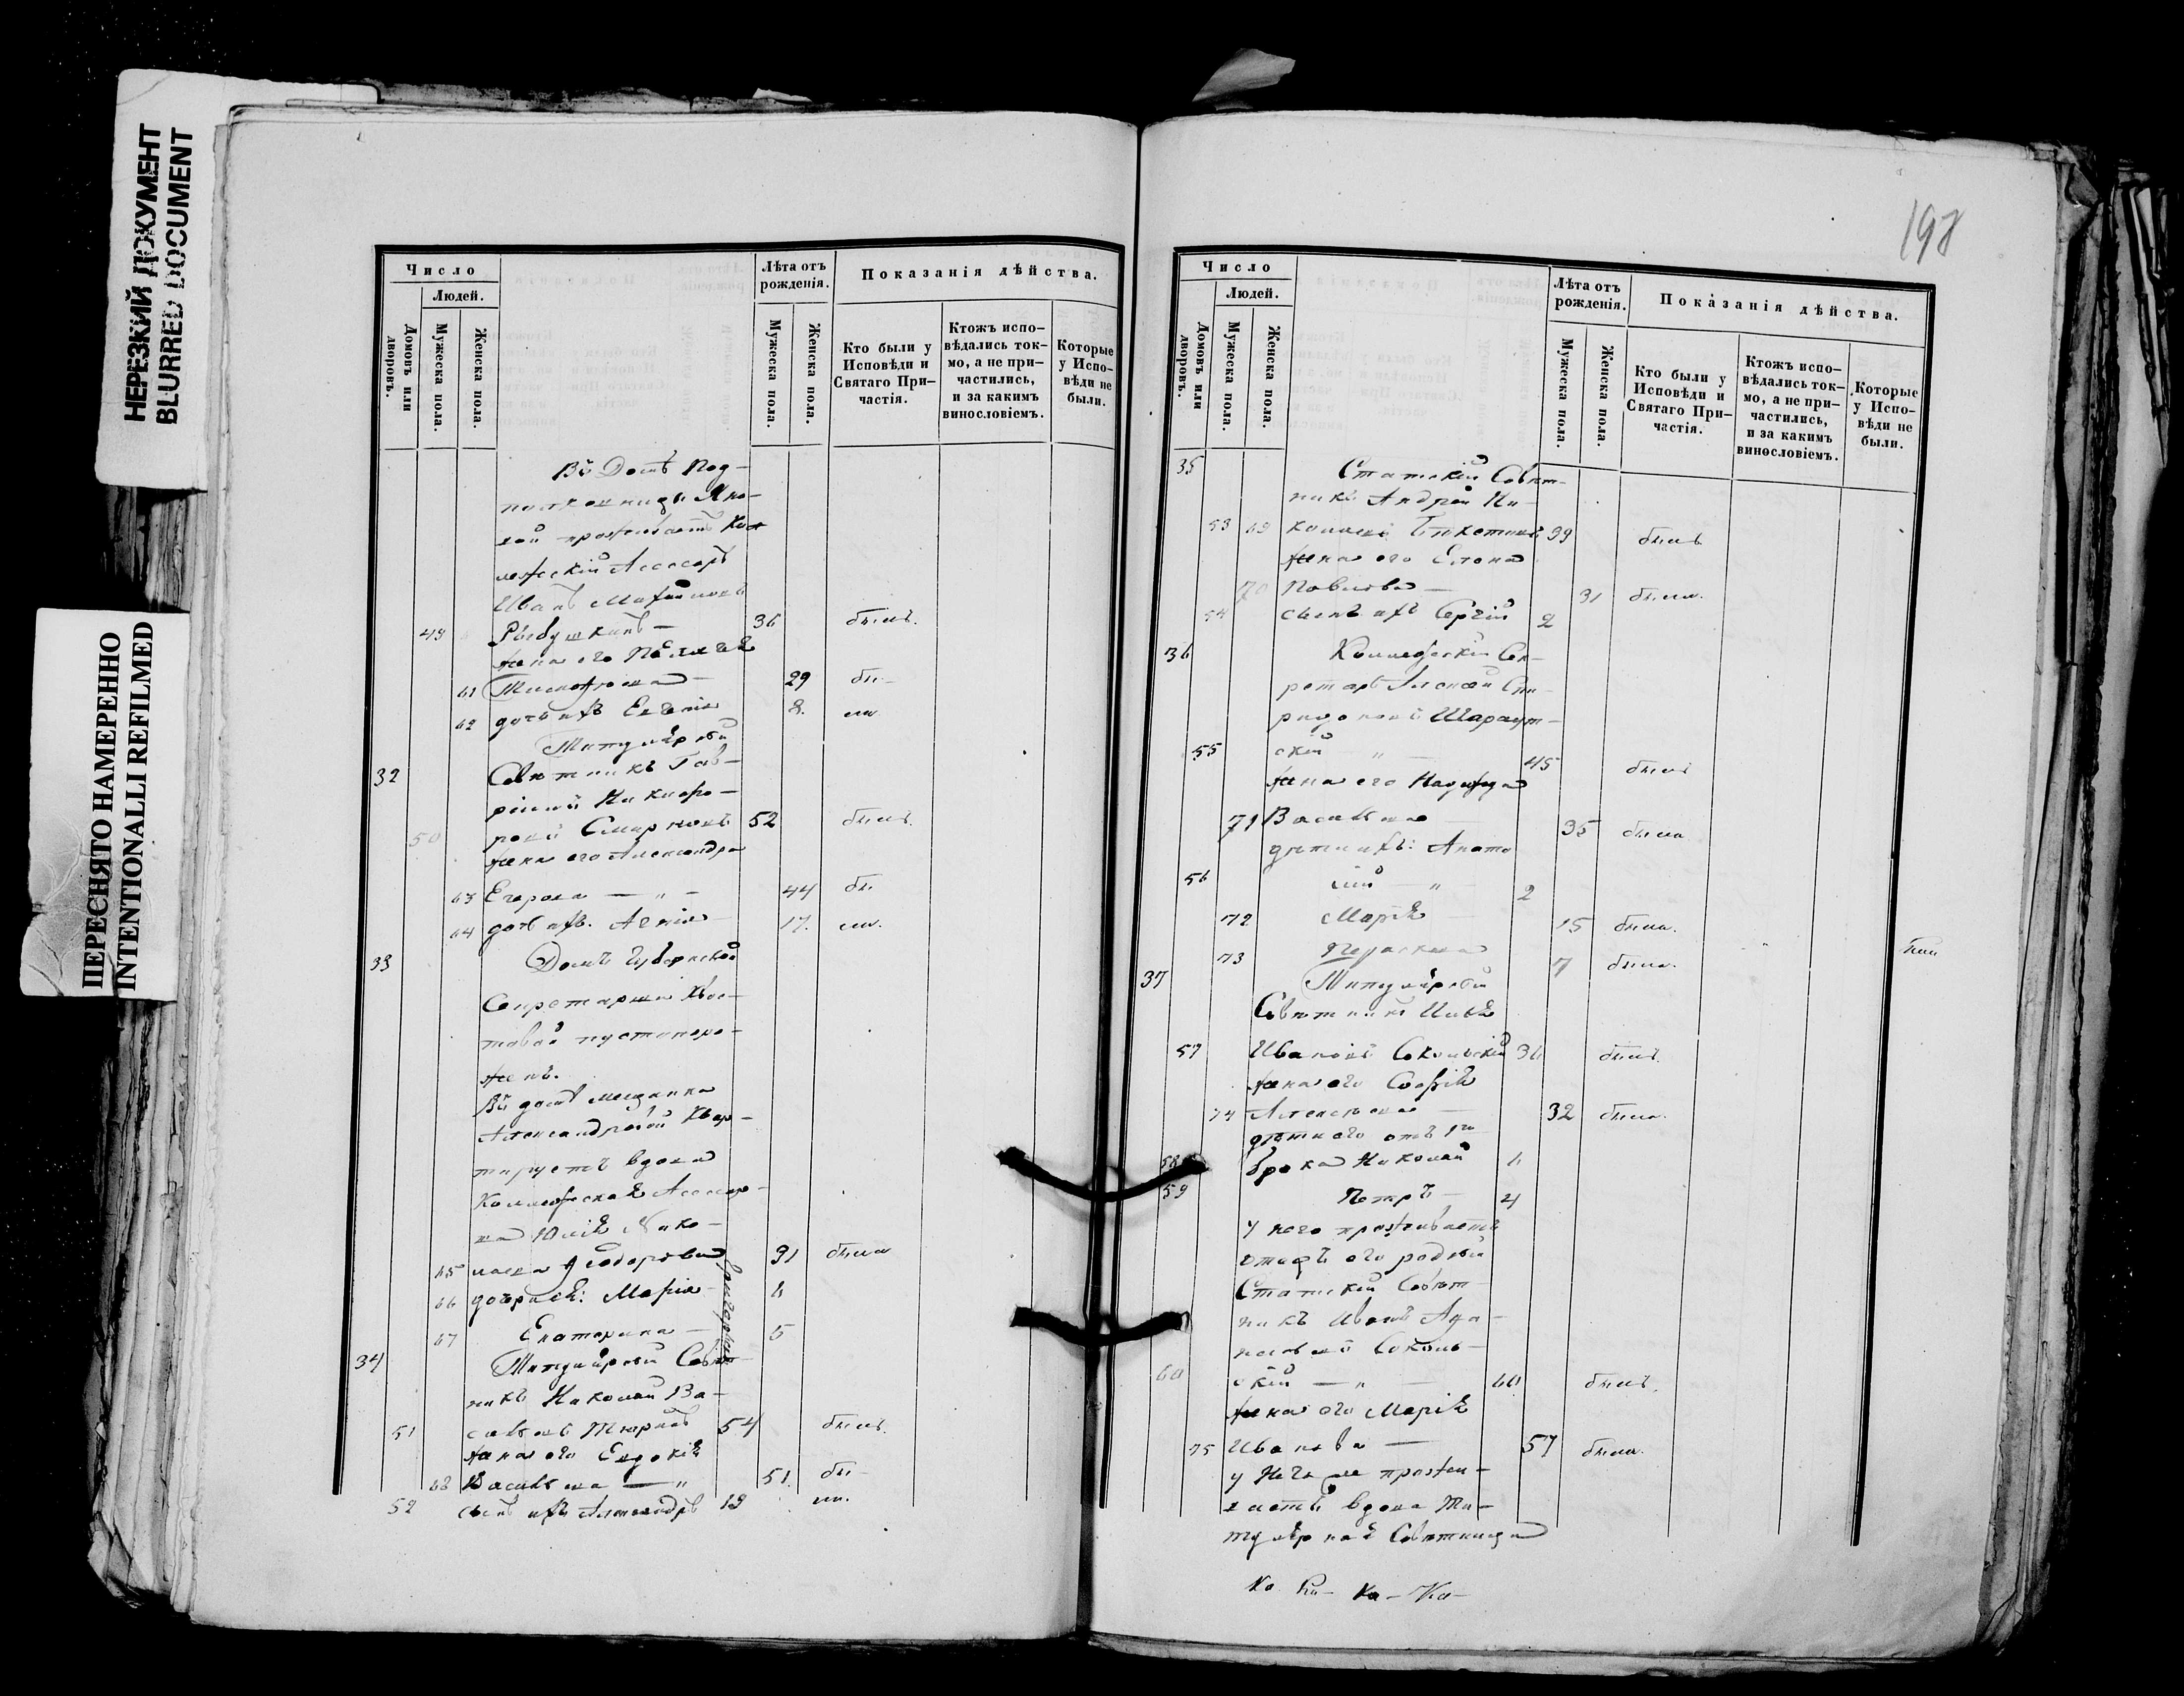 НЕРЕЗКИЙ ДОКУМЕНТ
BLURRED DOCUMENT
ПЕРЕСНЯТО НАМЕРЕННО
INTENTIONALLI REFILMED
Число
Людей.
Домовъ или дворовъ.
Мужеска пола.
Женска пола.
Лѣта отъ рожденія.
Мужеска пола.
Женска пола.
Показанія дѣйства.
Кто были у Исповѣди и Святаго При-частія.
Ктожъ испо-вѣдались ток-мо, а не при-частились, и за какимъ винословіемъ.
Которые у Испо-вѣди не были.
Въ Домѣ Под-
проживаетъ Кол
лежскій Асессоръ
Иванъ
49 Рябушкинъ — 36 былъ.
жена его Пелагея
61 Тимофеева — 29 бы-
62 дочь ихъ Евгенія 8. ли
Титулярный
32 Совѣтникъ Гав-
ріилъ Никифо-
50 ровъ Смирновъ 52 былъ.
жена его Александра
63 Егорова — „ — 44 бы
64 дочь ихъ. Агнія 17. ли.
33 Домъ Губернской
Секретарши Хвос-
товой пустопоро-
женъ.
Въ домѣ мещанки
Александровой Квар-
тируетъ вдова
Коллежская Асессор-
ша Юлія Нико-
65 лаева Ѳеодорова 31 была
66 дочери ея: Марія 6
67 Екатерина — 5
34 Титулярный Совѣт
никъ Николай Ва-
51 сильевъ Тюринъ 54 былъ.
жена его Евдокія
68 Васильева — „ 51. бы-
52 сынъ ихъ Александръ 19 ли.
198
Число
Людей.
Домовъ или дворовъ.
Мужеска пола.
Женска пола.
Лѣта отъ рожденія.
Мужеска пола.
Женска пола.
Показанія дѣйства.
Кто были у Исповѣди и Святаго При-частія.
Ктожъ испо-вѣдались ток-мо, а не при-частились, и за какимъ винословіемъ.
Которые у Испо-вѣди не были.
35 Статскій Совѣт-
никъ Андрей Ни-
53 69 39 былъ
жена его Елена
70 Павлова — 31 была.
54 сынъ ихъ Сергій 2
36 Коллежскій Сек-
ретарь Алексѣй Спи-
ридоновъ
55 скій „ — 45 былъ
жена его Надежда
71 Васильева — 35 была
дѣти ихъ: Анато
56 лій — „ — 2
72 Марія — 15 была.
73 7 была.
37 Титулярный
Совѣтникъ Илья
57 Ивановъ Сокольскій 36 былъ.
жена его Софія
74 Алексѣева — 32 была.
дѣти его отъ 1го
58 брака Николай 6
59 Петръ — 4
У него проживаетъ
отецъ его родный
Статскій Совѣт-
никъ Иванъ Ада-
мовъ Соколь-
60 скій — „ — 60 былъ.
жена его Марія
75 Иванова — 57 была.
У него же прожи-
ваетъ вдова Ти-
тулярная Совѣтница
Ка- Ка- Ка- Ка-